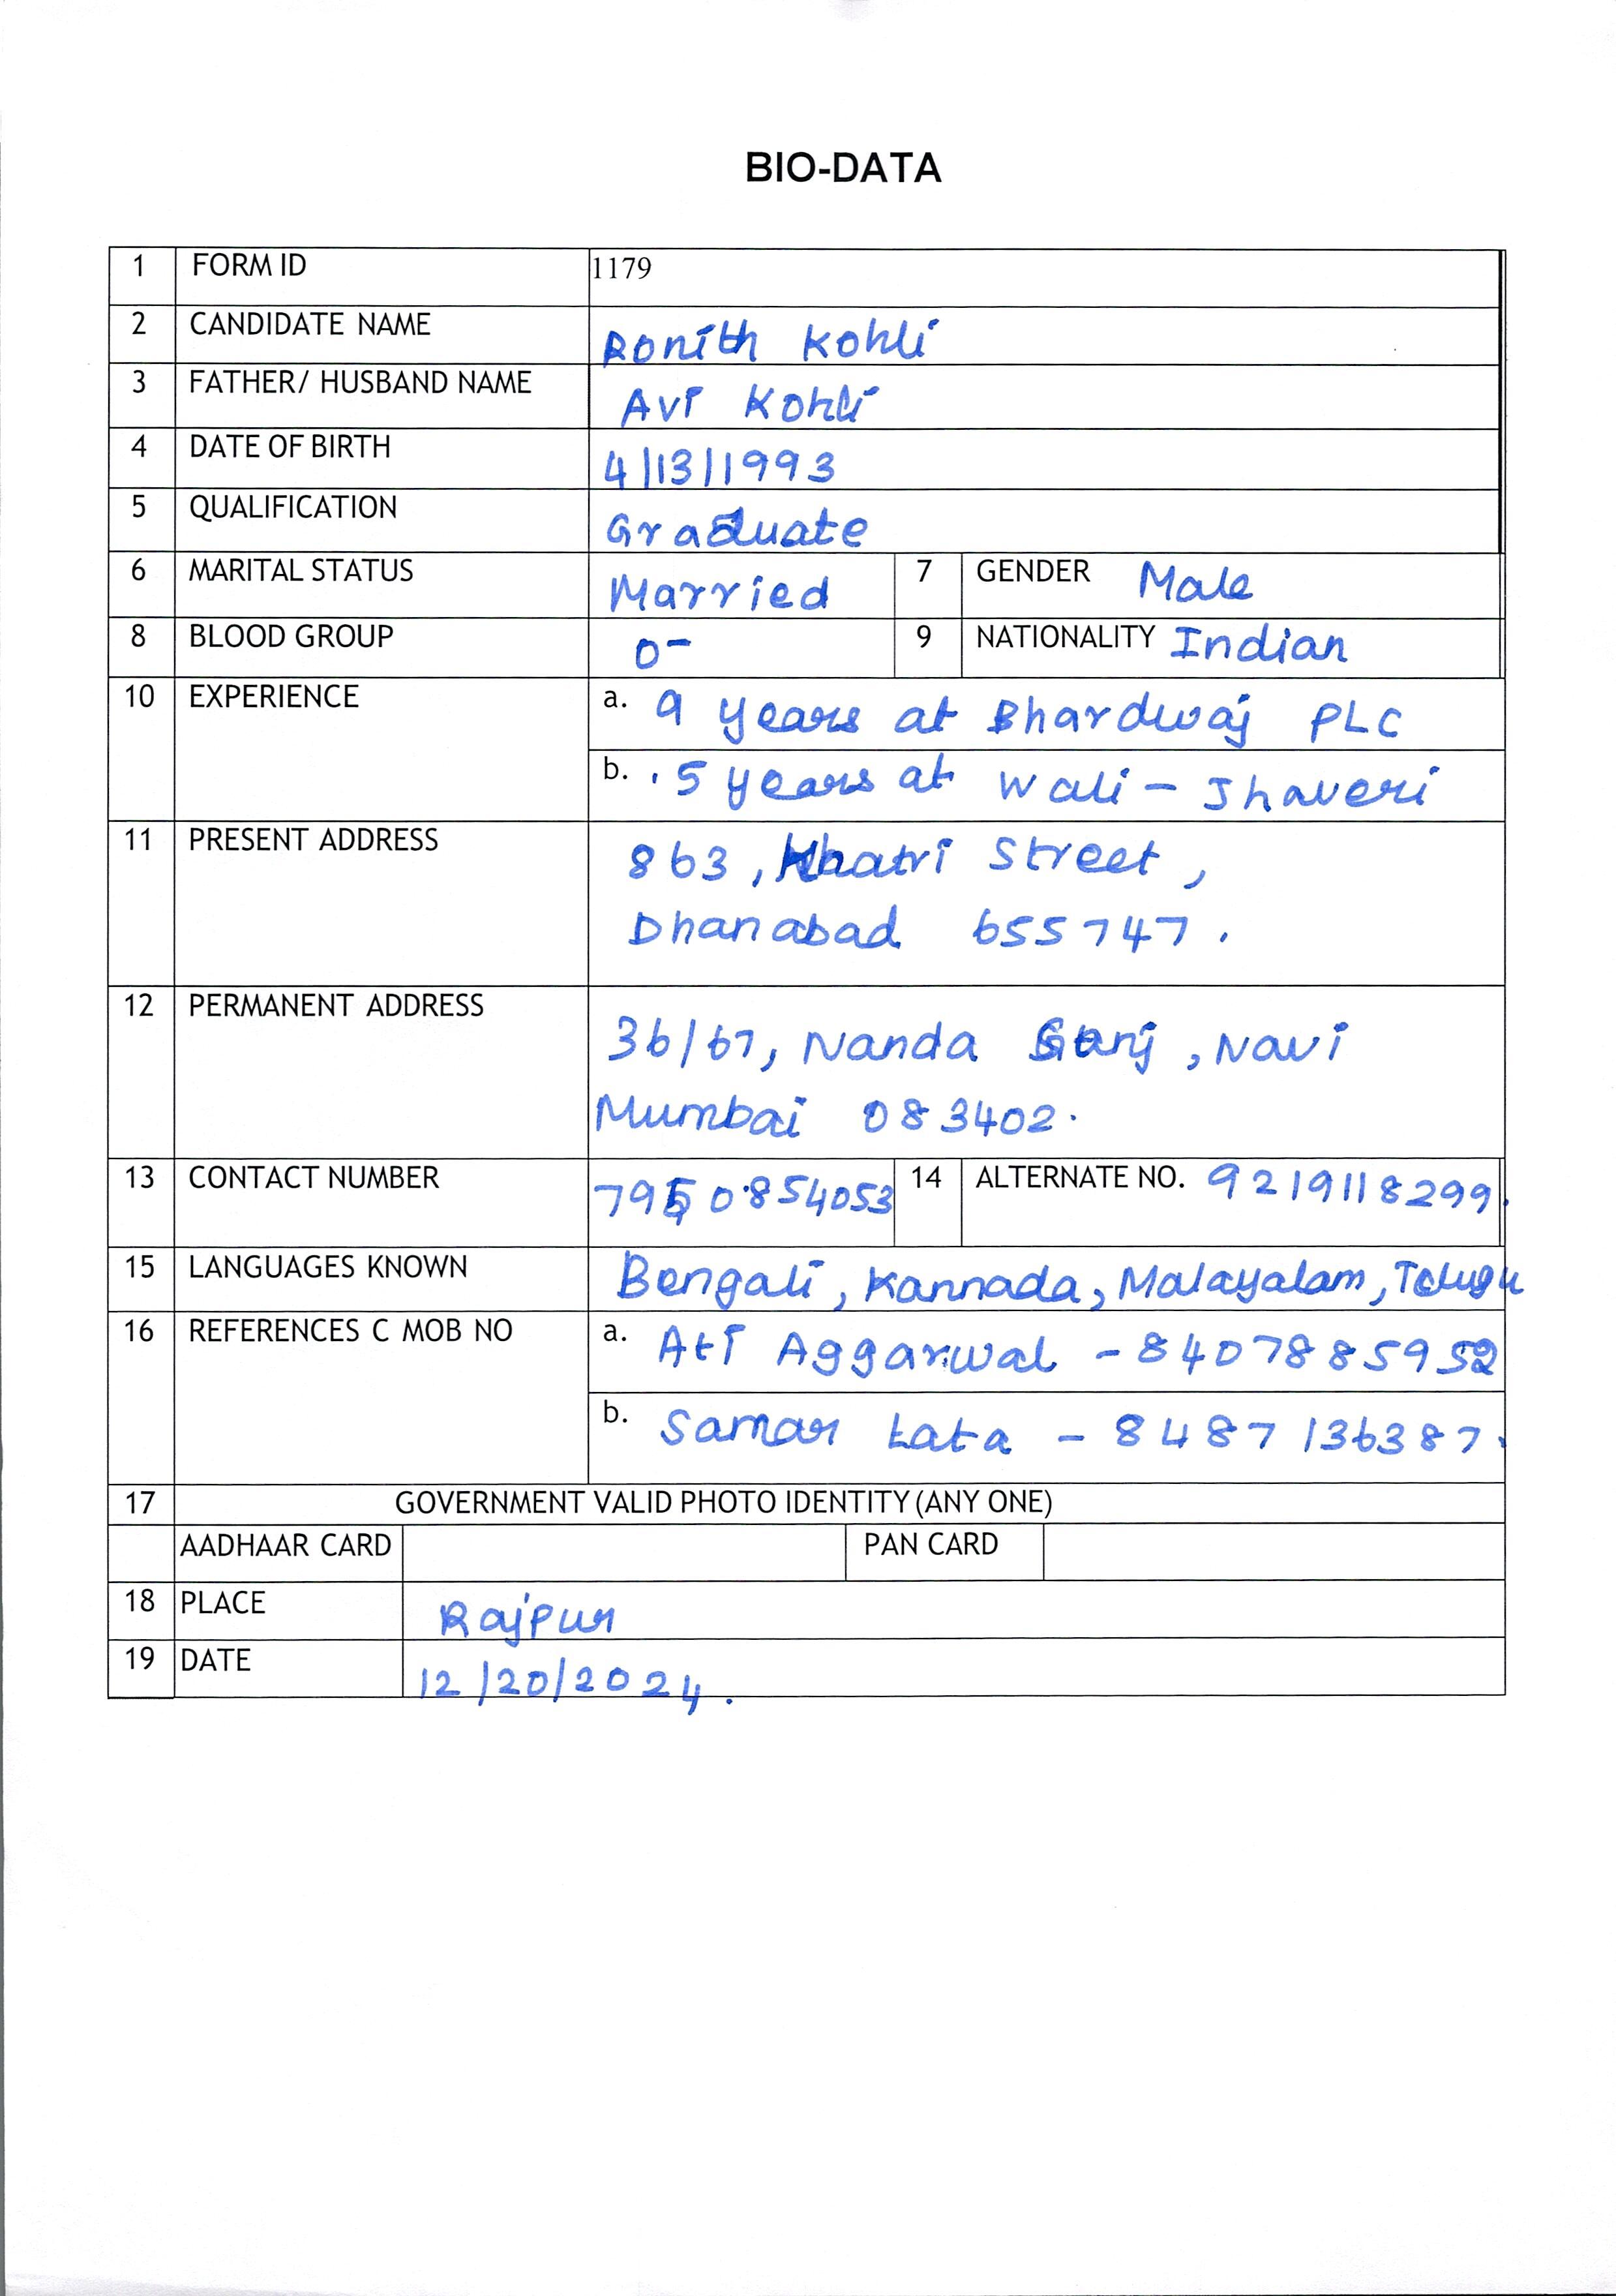 BIO-DATA
1 FORM ID 1179
2 CANDIDATE NAME Ronith Kohli
3 FATHER/ HUSBAND NAME Avi Kohli
4 DATE OF BIRTH 4/13/1993
5 QUALIFICATION Graduate
6 MARITAL STATUS Married 7 GENDER Male
8 BLOOD GROUP O- 9 NATIONALITY Indian
10 EXPERIENCE a. 9 years at Bhardwaj PLC
b. 5 years at Wali - Jhaveri
11 PRESENT ADDRESS 863, Khatri Street,
Dhanabad 655747.
12 PERMANENT ADDRESS 36/67, Nanda Ganj, Navi
Mumbai 083402.
13 CONTACT NUMBER 7950854053 14 ALTERNATE NO. 9219118299.
15 LANGUAGES KNOWN Bengali, Kannada, Malayalam, Telugu
16 REFERENCES C MOB NO a. Ati Aggarwal - 8407885952
b. Samar Lata - 8487136387.
17 GOVERNMENT VALID PHOTO IDENTITY (ANY ONE)
AADHAAR CARD PAN CARD
18 PLACE Rajpur
19 DATE 12/20/2024.